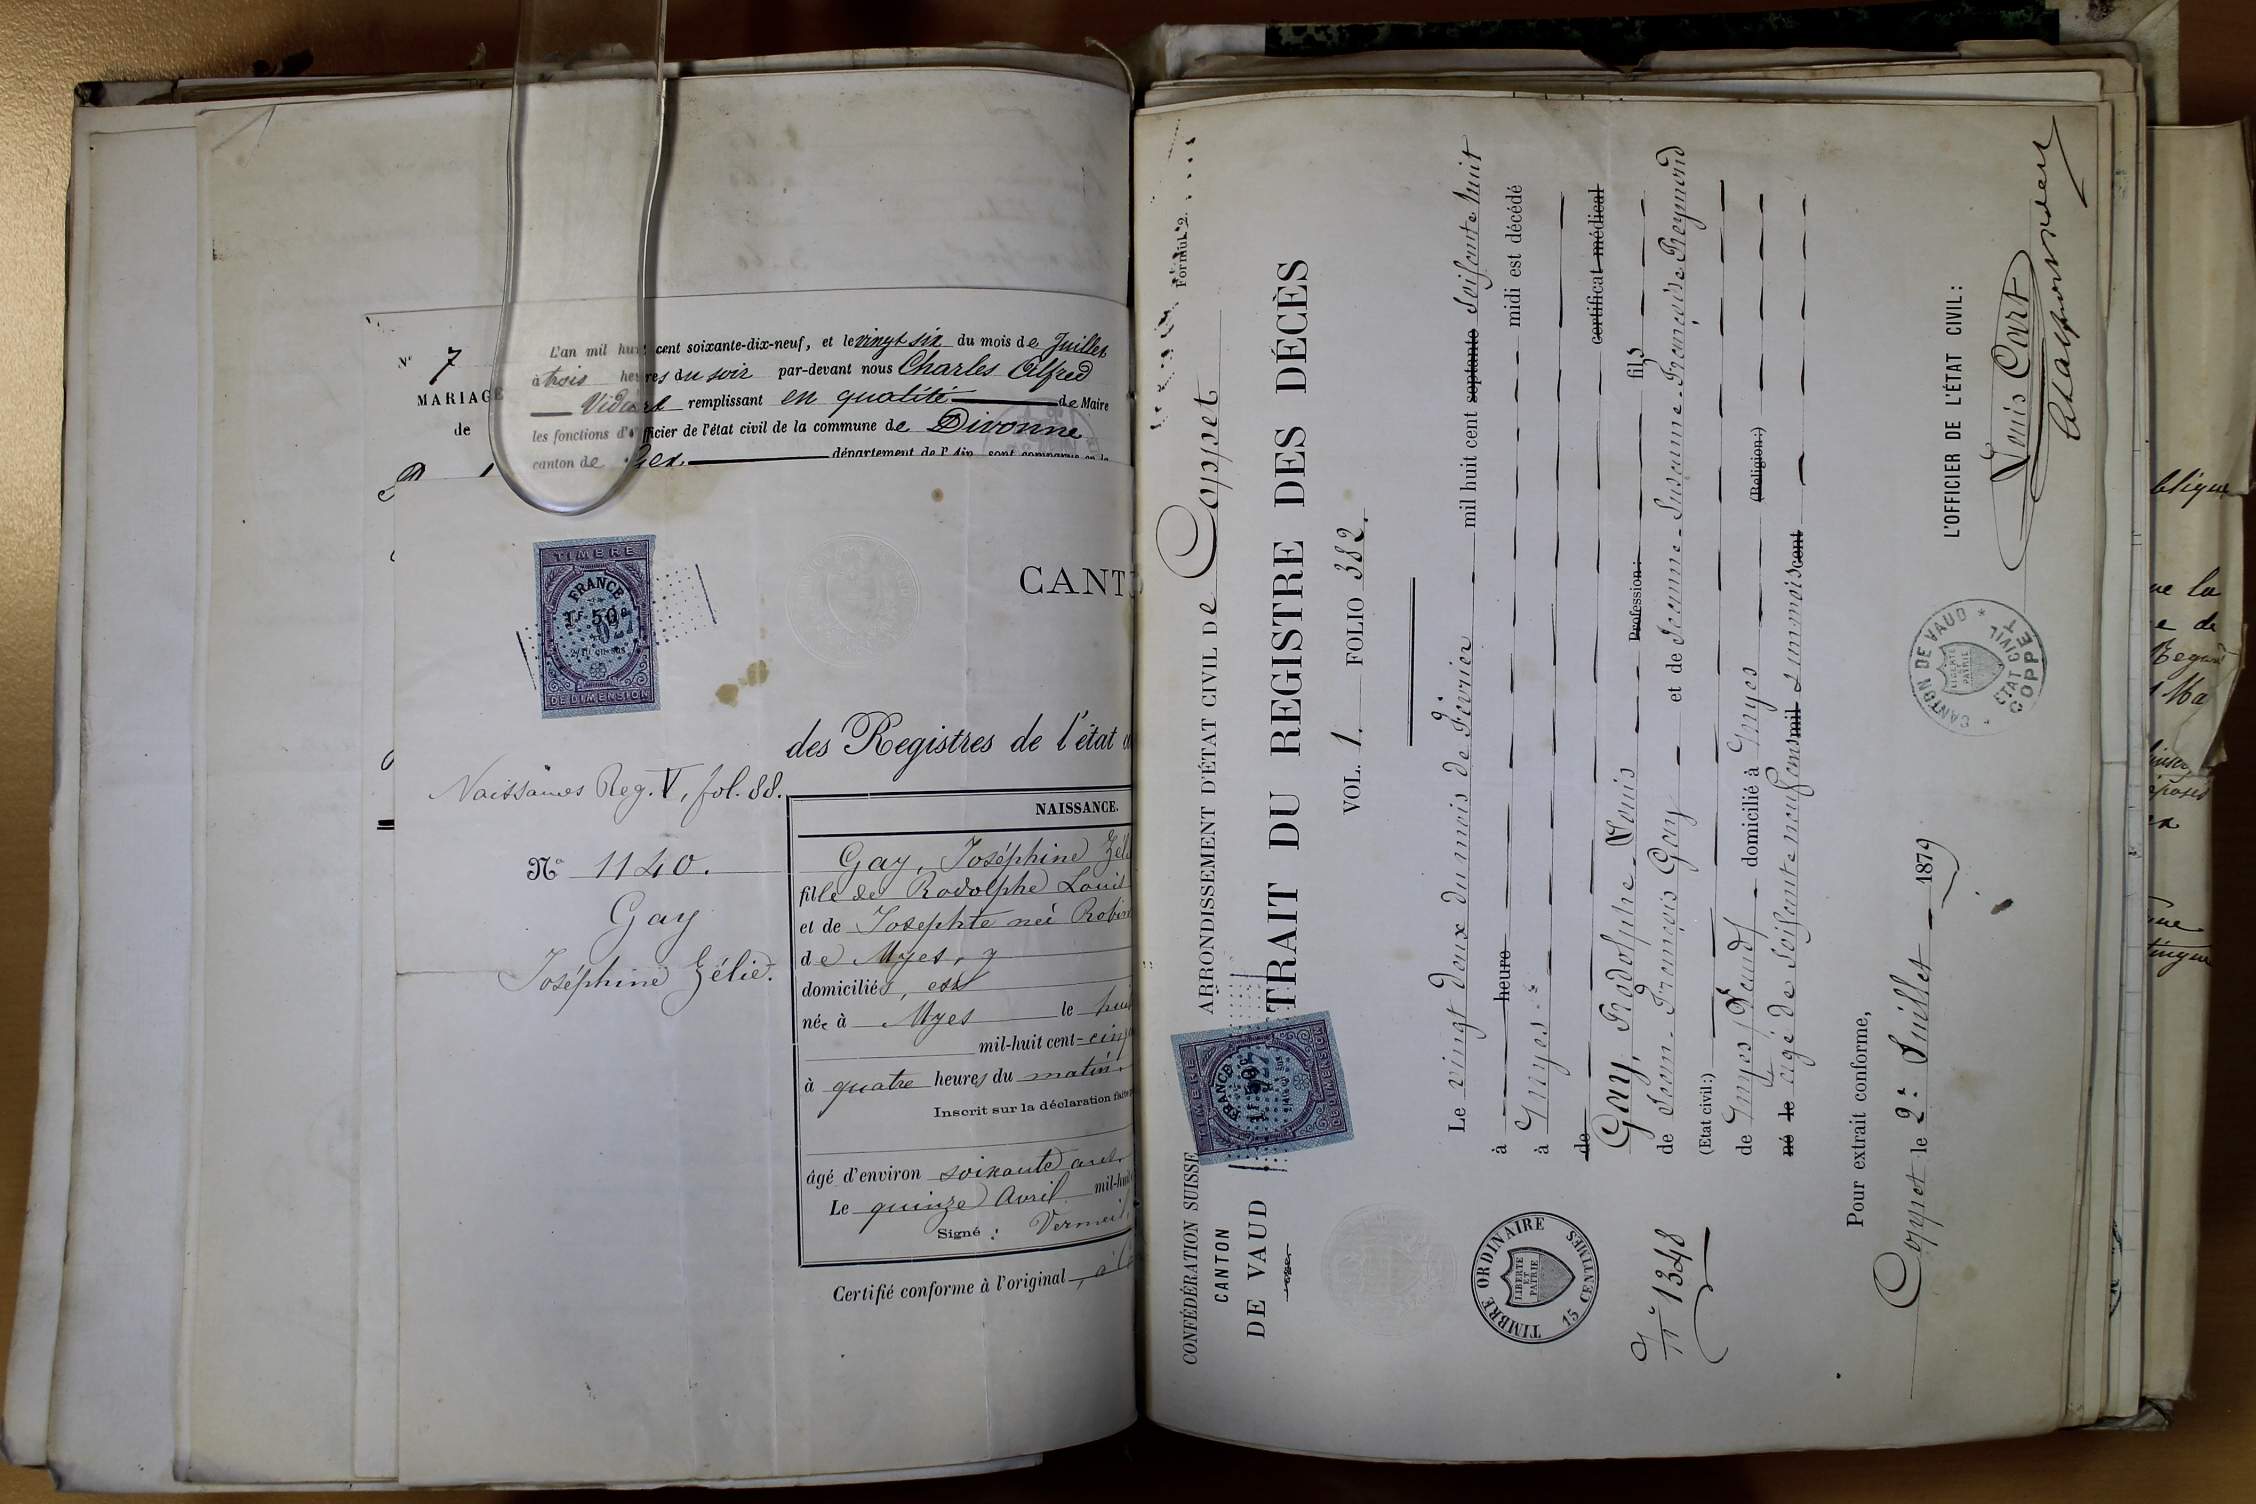 N° 7
MARIAGE
de
L'an mil huit cent soixante-dix-neuf, et le vingt six du mois de Juillet
à trois heures du soir par-devant nous Charles Alfred
Vidart remplissant en qualité de Maire
les fonctions d'officier de l'état civil de la commune de Divonne
canton de Gex. département de l'Ain, sont comparus en la
TIMBRE
FRANCE
1F 50c
2/10 en sus
DE DIMENSION
CANT
des Registres de l'état c
Naissances Reg. V, fol. 88.
N° 1140.
Gay
Joséphine Zélie.
NAISSANCE.
Gay, Joséphine Zél
fille de Rodolphe Louis
et de Josephte née Robin
de Myes, y
domiciliés, est
née à Myes le hui
mil-huit cent-cinq
à quatre heures du matin.
Inscrit sur la déclaration faite
âgé d'environ soixante ans.
Le quinze Avril mil-huit
Signé : Vermeil,
Certifié conforme à l'original, à
Formul. 2.
CONFÉDÉRATION SUISSE
CANTON
DE VAUD
ARRONDISSEMENT D'ÉTAT CIVIL DE Coppet
TIMBRE
FRANCE
DE DIMENSION
TRAIT DU REGISTRE DES DÉCÈS
VOL. 1. FOLIO 382.
Le vingt deux du mois de Février mil huit cent septante soisante huit
à heure midi est décédé
à Myes
de certificat médical
Gay, Rodolphe-Louis Profession: fils
de Jean-François Gay et de Jeanne-Susanne-Françoise Reymond
(Etat civil:)
de Myes (Vaud) domicilié à Myes (Religion:)
né le agé de soisante neuf ans mil & un mois cent
TIMBRE ORDINAIRE
LIBERTÉ ET PATRIE
15 CENTIMES
N° 1348
Pour extrait conforme,
Coppet le 2e Juillet 1879
L'OFFICIER DE L'ÉTAT CIVIL:
Louis Cart
CANTON DE VAUD
LIBERTÉ ET PATRIE
ETAT CIVIL
COPPET